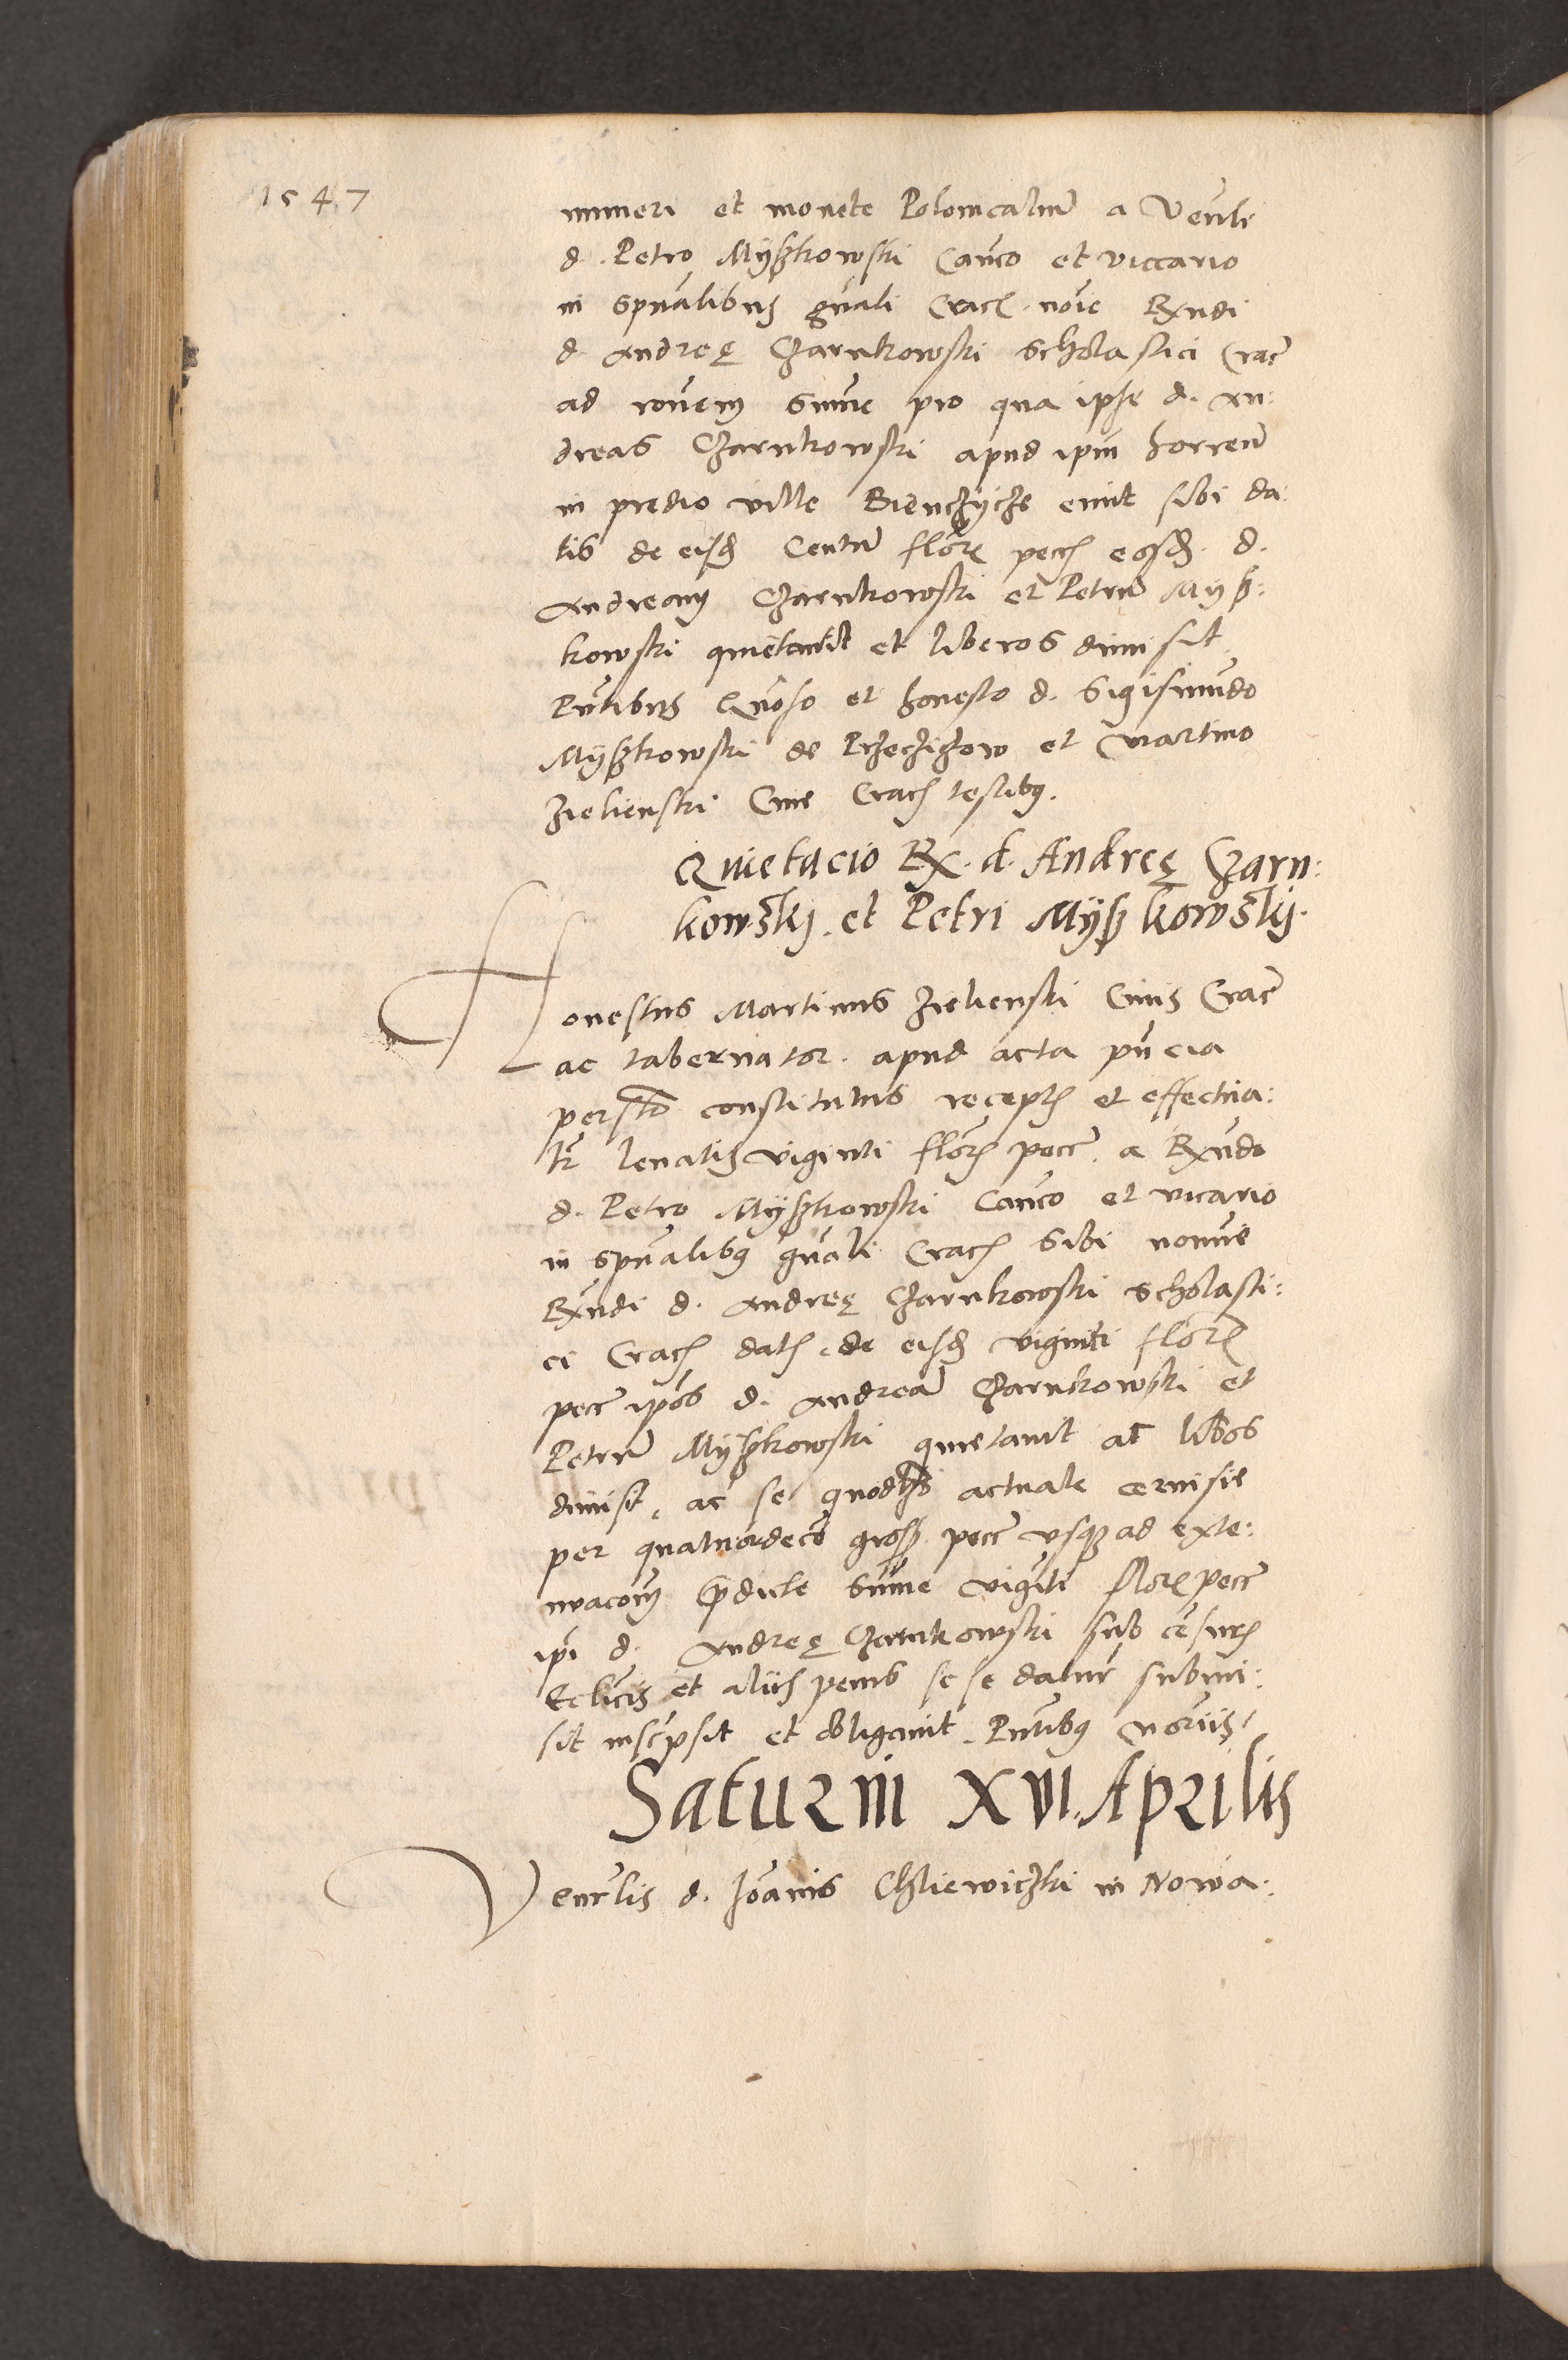 1547
numeri et monete Polonicaliū a Venli
d. Petro Mÿßkowski Canco et viccario
in spūalibus gn̄ali Crac̄. noīe Rx̄ndi
d. Andreę Czarnkowski scholastici Crac̄
ad ronem̄ sum̄e pro qua ipse d. An:
dreas Czarnkowski apud ipm̄ horreū
in predio ville Bienczÿcze emit sibi da:
tis de eisd̄ Centū flor̄ pecc̄ eosd̄. d.
Andream Czarnkowski et Petrū Mÿß:
kowski quietavit et liberos dimisit
Pn̄tibus Gn̄oso et honesto d. Sigismūdo
Mÿßkowski de Przeczißow et Martino
Zielienski Cive Crac̄ testibꝫ.
Quietacio Rx. d. Andreę Czarn:
kowskÿ. et Petri Mÿßkowskÿ.
Honestus Martinus Zielienski Civis Crac̄
ac tabernator. apud acta pn̄cia
persl̄r constitutus receptꝭ et effectua:
lr̄ levatis viginti flor̄ pecc̄. a Rx̄ndo
d. Petro Mÿßkowski Canco et vicario
in spūalibꝫ gn̄ali Crac̄ sibi nomīe
Rx̄ndi d. Andreę Czarnkowski scholasti:
ci Crac̄ datꝭ. de eisd̄ viginti flor̄
pecc̄ ipōs d. Andreā Czarnkowski et
Petrū Mÿßkowski quietavit ac lib̄os
dimisit, ac se quodlꝫ actuale cervisie
per quatuordecē gross̄ pecc̄ usqꝫ ad exte:
nvaconē p̄dicte sum̄e vigīti flor̄ pecc̄
ipī d. Andreę Czarnkowski sub cēsurꝭ
Eclīcis et aliis penis sese datur̄ submi:
sit inscrpsit et obligavit. Pn̄tibꝫ
Saturni XVI. Aprilis
Ven̄rlis d. Joānis Chliewiczki in Nowa: